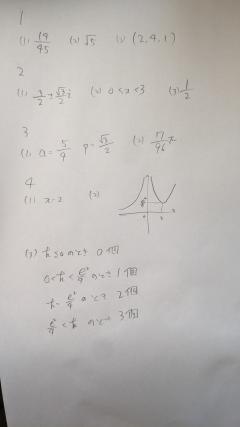 1
(1) 19/45 (2) √5 (3) (2, 4, 1)
2
(1) 3/2 ± √3/2 i (2) 0 < x < 3 (3) 1/2
3
(1) a = 5/4 p = √3/2 (2) 17/96 π
4
(1) x - 2 (2)
(3) k ≤ 0 のとき 0個
0 < k < e²/4 のとき 1個
k = e²/4 のとき 2個
e²/4 < k のとき 3個